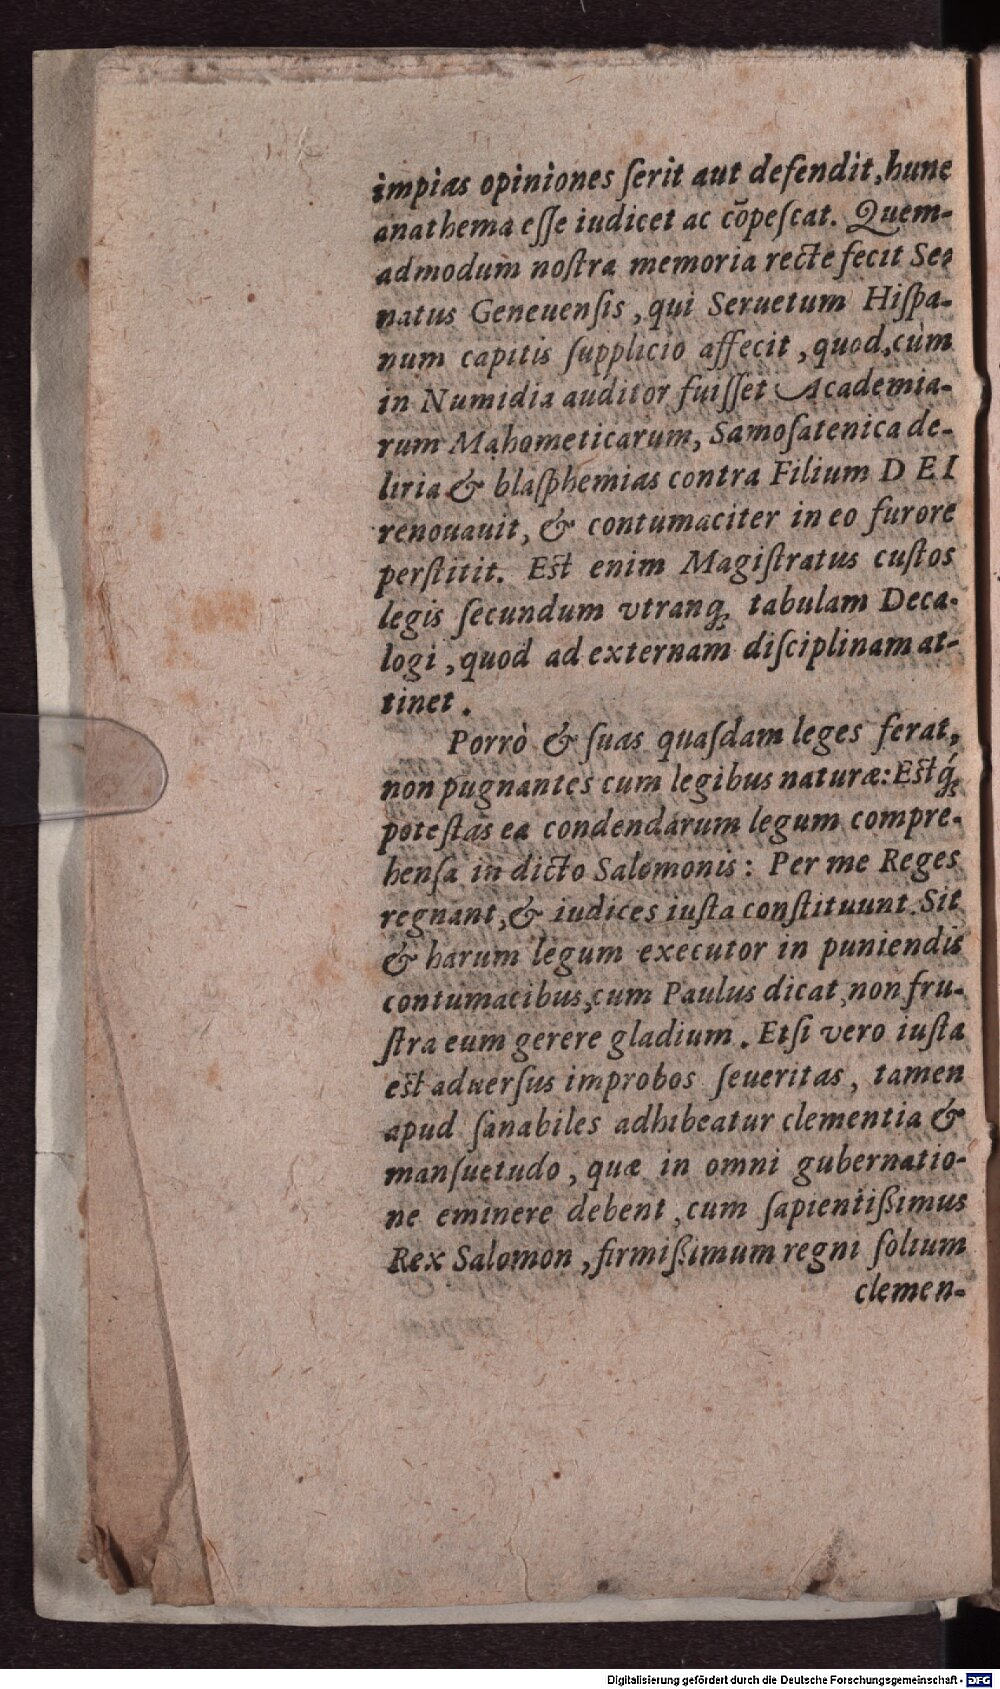 impias opiniones ſerit aut defendit, hunc
anathema eſſe iudicet ac cōpeſcat. Quem-
admodum noſtra memoria recte fecit Se-
natus Geneuenſis, qui Seruetum Hiſpa-
num capitis ſupplicio affecit, quod, cùm
in Numidia auditor fuiſſet Academia-
rum Mahometicarum, Samoſatenica de-
liria & blaſphemias contra Filium DEI
renouauit, & contumaciter in eo furore
perſtitit. Eſt enim Magiſtratus cuſtos
legis ſecundum vtranq; tabulam Deca-
logi, quod ad externam diſciplinam at-
tinet.
Porrò & ſuas quaſdam leges ferat,
non pugnantes cum legibus naturæ: Eſtq́;
poteſtas ea condendarum legum compre-
henſa in dicto Salomonis: Per me Reges
regnant, & iudices iuſta conſtituunt. Sit
& harum legum executor in puniendis
contumacibus, cum Paulus dicat, non fru-
ſtra eum gerere gladium. Etſi vero iuſta
eſt aduerſus improbos ſeueritas, tamen
apud ſanabiles adhibeatur clementia &
manſuetudo, quæ in omni gubernatio-
ne eminere debent, cum ſapientiſsimus
Rex Salomon, firmiſsimum regni ſolium
clemen-
Digitalisierung gefördert durch die Deutsche Forschungsgemeinschaft - DFG